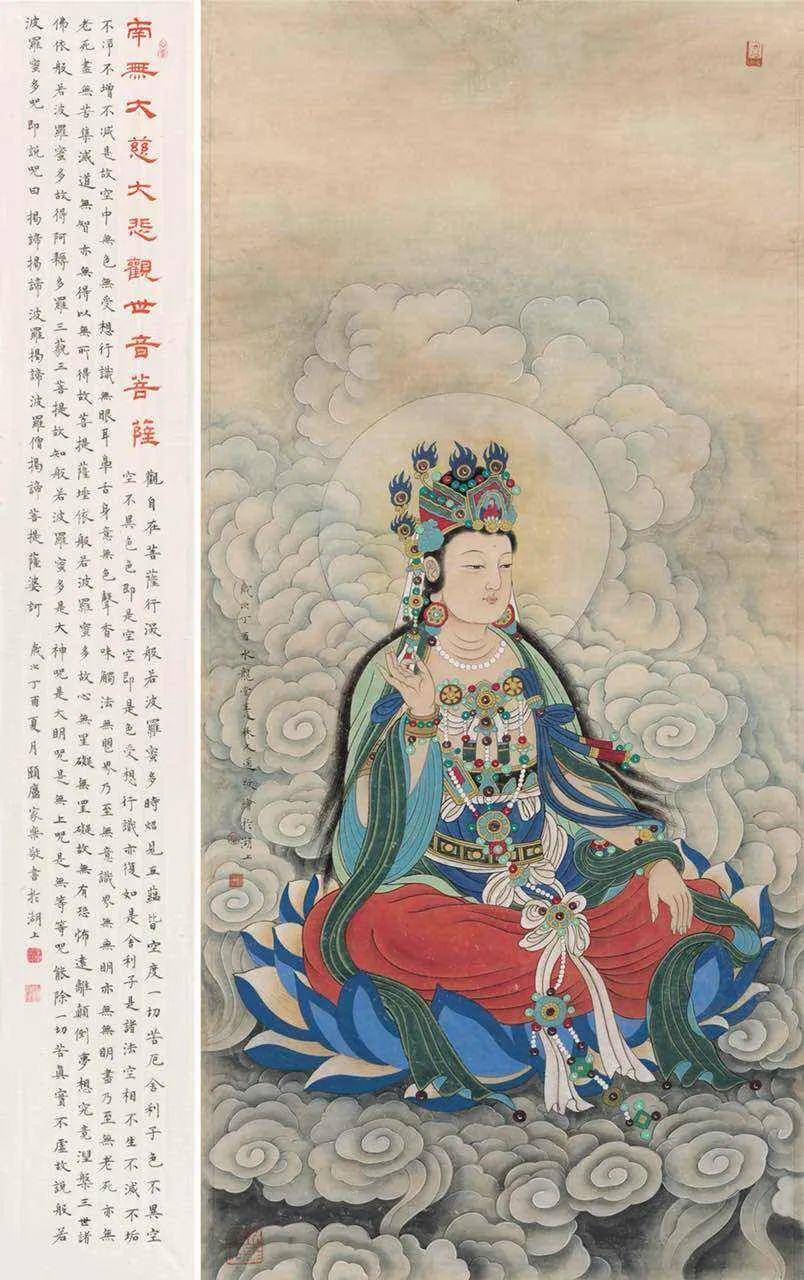 南無大慈大悲觀世音菩薩
觀自在菩薩行深般若波羅蜜多時照見五蘊皆空度一切苦厄舍利子色不異空
空不異色色即是空空即是色受想行識亦復如是舍利子是諸法空相不生不滅不垢
不淨不增不減是故空中無色無受想行識無眼耳鼻舌身意無色聲香味觸法無眼界乃至無意識界無無明亦無無明盡乃至無老死亦無
老死盡無苦集滅道無智亦無得以無所得故菩提薩埵依般若波羅蜜多故心無罣礙無罣礙故無有恐怖遠離顛倒夢想究竟涅槃三世諸
佛依般若波羅蜜多故得阿耨多羅三藐三菩提故知般若波羅蜜多是大神呪是大明呪是無上呪是無等等呪能除一切苦真實不虛故說般若
波羅蜜多呪即說呪曰 揭諦揭諦 波羅揭諦 波羅僧揭諦 菩提薩婆訶 歲次丁酉夏月頤廬家樂敬書於湖上
歲次丁酉 繪於湖上